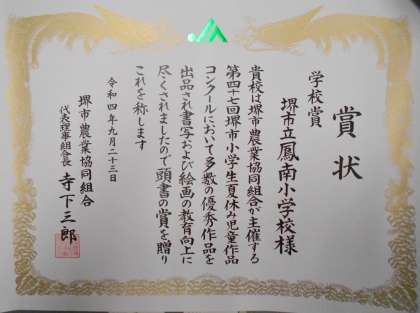 賞状
学校賞
堺市立鳳南小学校様
貴校は堺市農業協同組合が主催する
第四十七回堺市小学生夏休み児童作品
コンクールにおいて多数の優秀作品を
出品され書写および絵画の教育向上に
尽くされましたので頭書の賞を贈り
これを称します
令和四年九月二十三日
堺市農業協同組合
代表理事組合長 寺下三郎